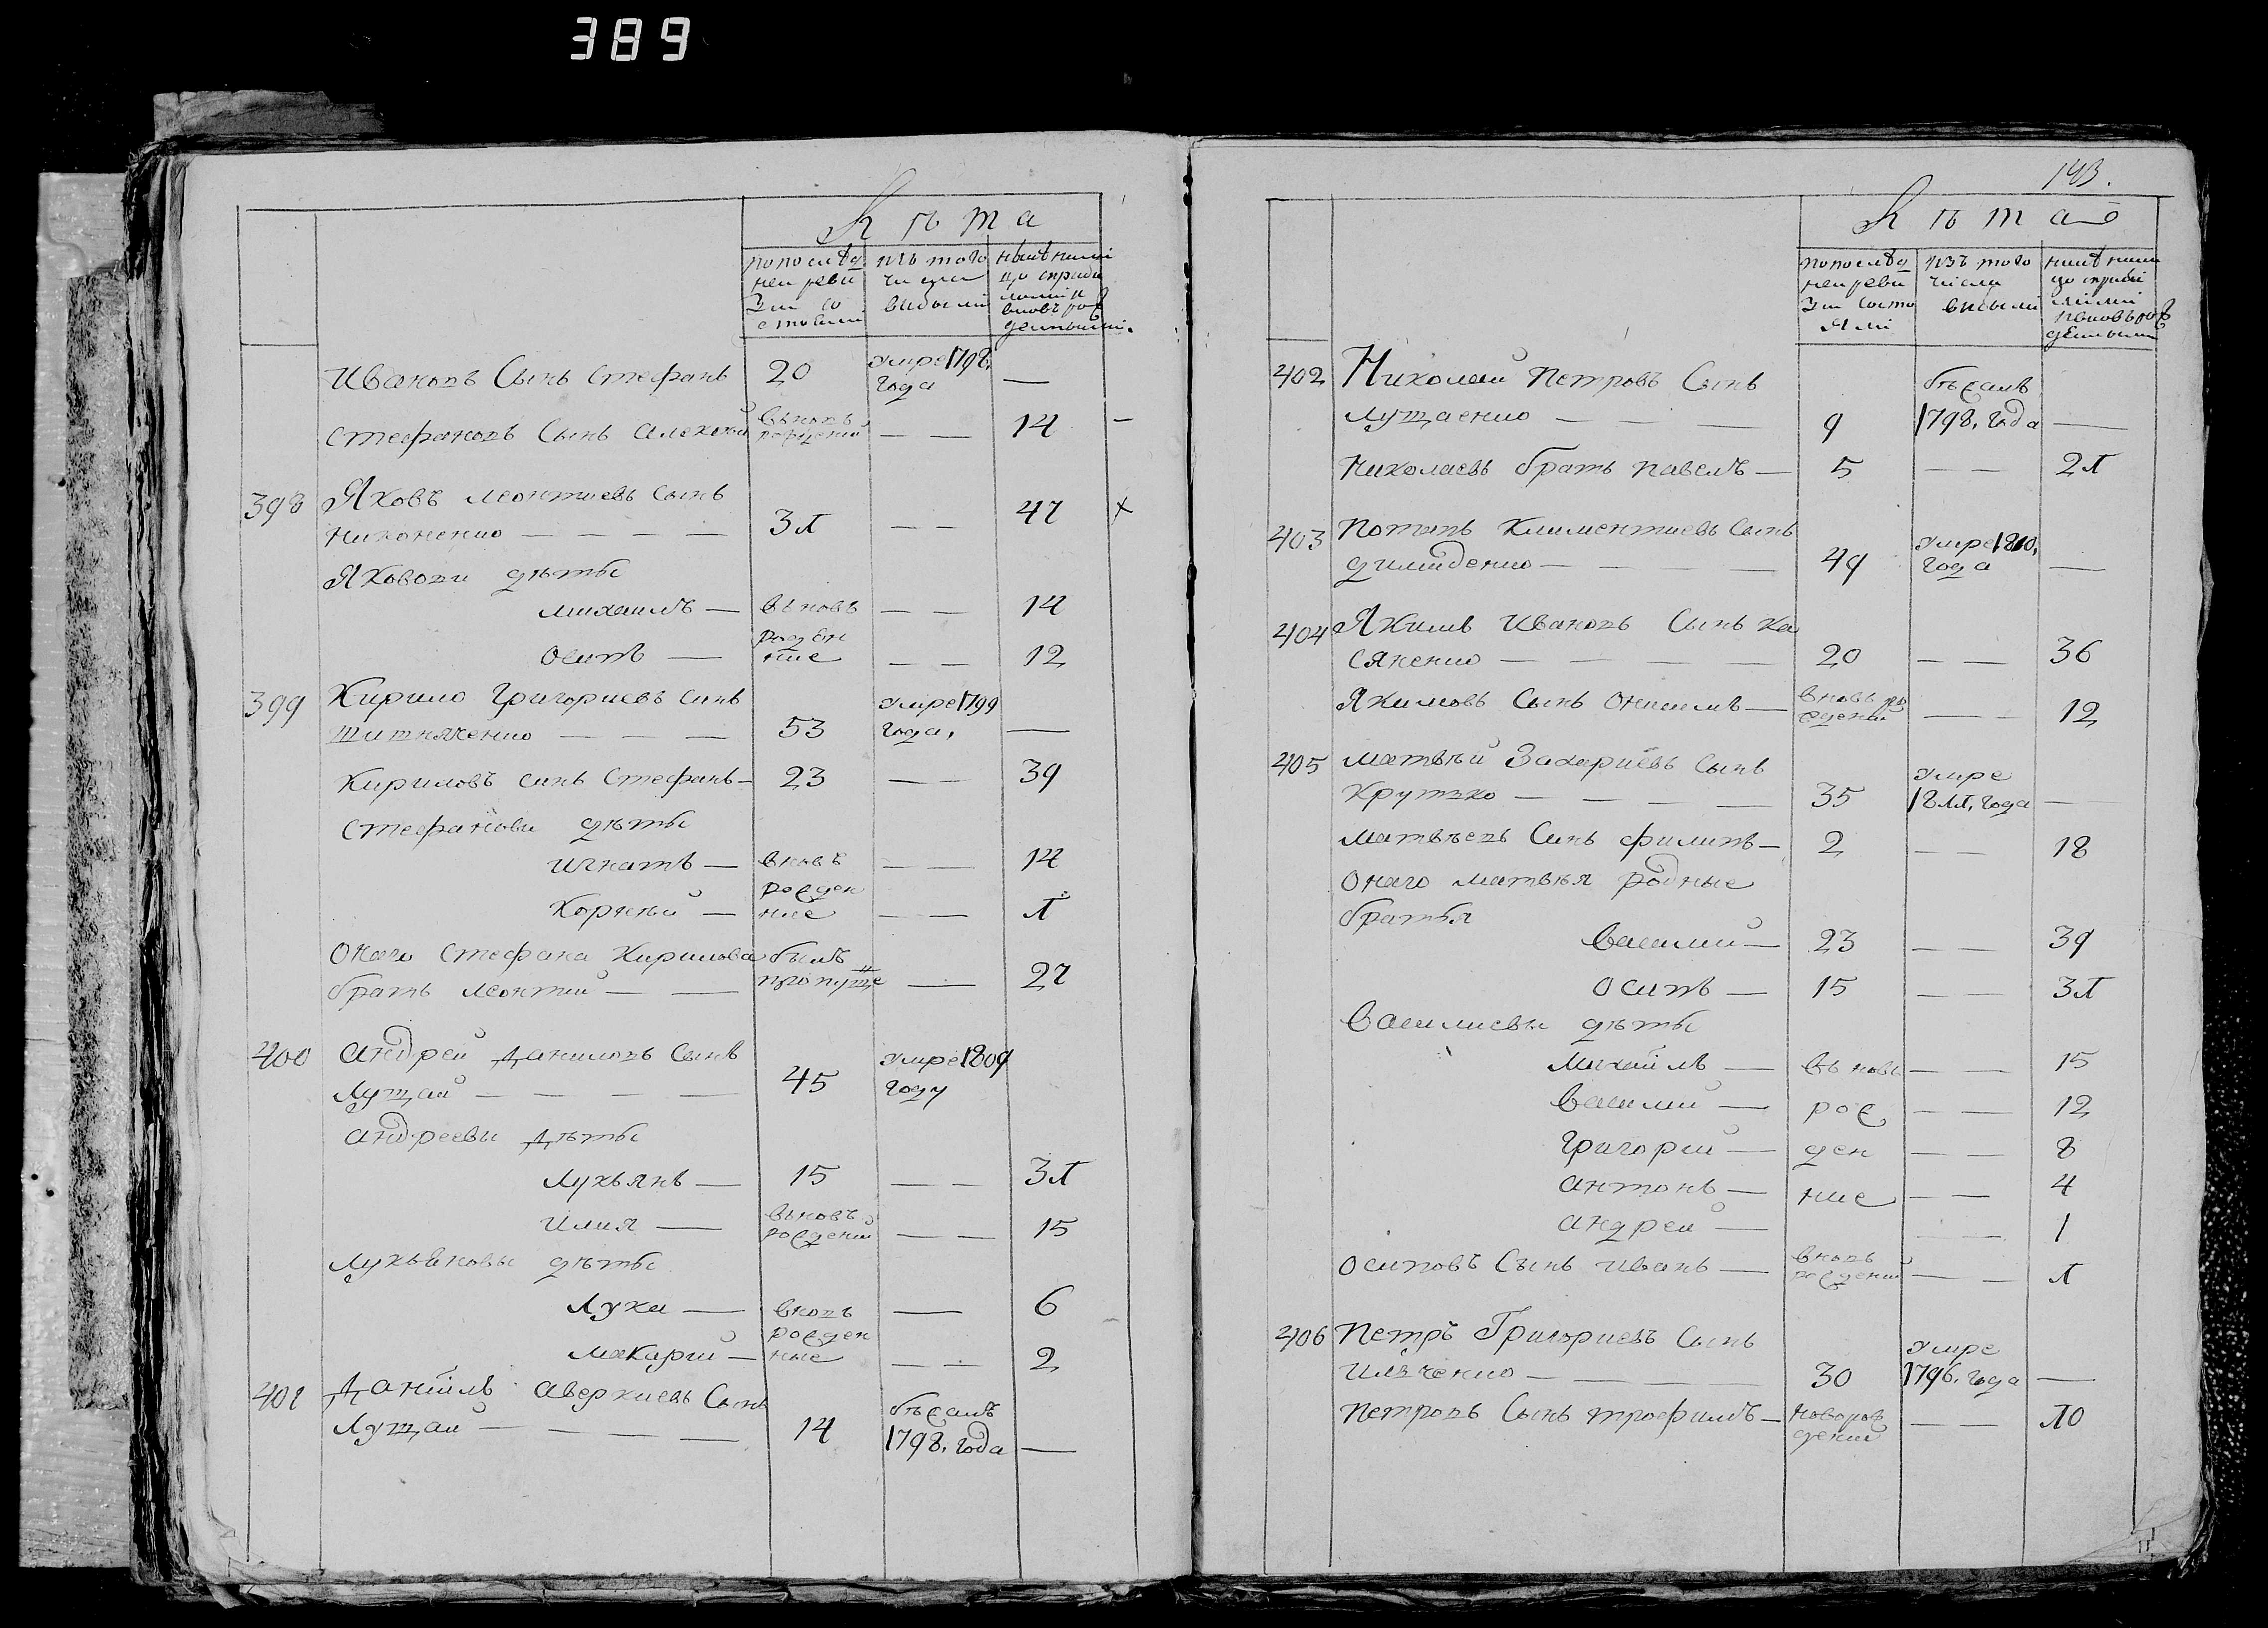 389
Лѣта
по послѣд
ней реви
зiи со
стояли
изъ того
числа
выбыли
нынѣ на ли
цо с при бы
лыми и
вновь рож
денными.
Ивановъ Сынъ Стефанъ 20 умре 1798, года —
Стефановъ Сынъ Алексѣй вьновь рожденый — — 14 —
398 Яковъ Леонтиевъ Сынъ
Никоненко — — — — 3л — — 47 х
Яковови дѣты
Михаилъ — вьновь — — 14
Осипъ — рожден ние — — 12
399 Кирило Григориевъ синъ
Шитняченко — — — 53 умре 1799 года, —
Кириловъ синъ Стефанъ — 23 — — 39
Стефанови дѣты
Игнатъ — вновь — — 14
Корнѣй — рожден ние — — л
Онаго Стефана Кирилова былъ
братъ Леонтий — — пропуще н — 27
400 Андрей Даниловъ Сынъ
Лущай — — — — 45 умре 1809 году
Андреевы Дѣты
Лукьянъ — 15 — — 3л
Илия — вьновь рожденый — — 15
Лукьяновы дѣты
Лука — вновь — 6
Макарий — рожден ные — — 2
401 Данiилъ Аверкиевъ Сынъ
Лущай — — — — 14 бѣжалъ 1798, года —
143.
Лѣта
по послѣд
ней реви
зiи состо
яли
изъ того
числа
выбыли
нынѣ на ли
цо с при бы
лыми
и вновь рож
денными
402 Николай Петровъ Сынъ
Лущаенко — — — 9 бѣжалъ 1798, года —
Николаевъ братъ Павелъ — 5 — — 2л
403 Потапъ Климентиевъ Сынъ
Дилиденко — — — 49 умре 1810, года —
404 Якимъ Ивановъ Сынъ Ка
сяненко — — — — 20 — — 36
Якимовъ Сынъ Онисимъ — вновь ро жденый — — 12
405 Матвѣй Захариевъ Сынъ
Крутько — — — — 35 умре 18лл, года —
Матвѣевъ Синъ Филипъ — 2 — — 18
Онаго Матвѣя родные
братья
Василий — 23 — — 39
Осипъ — 15 — — 3л
Василиевы дѣты
Михаiлъ — вь новь — — 15
Василий — рож — — 12
Григорий — ден — — 8
Антонъ — ние — — 4
Андрей — — — 1
Осиповъ Сынъ Иванъ — вновь рожденый — — л
406 Петръ Григориевъ Сынъ
Ильченко — — — — 30 умре 1796, года —
Петровъ Сынъ Трофимъ — новорож деный — — л0